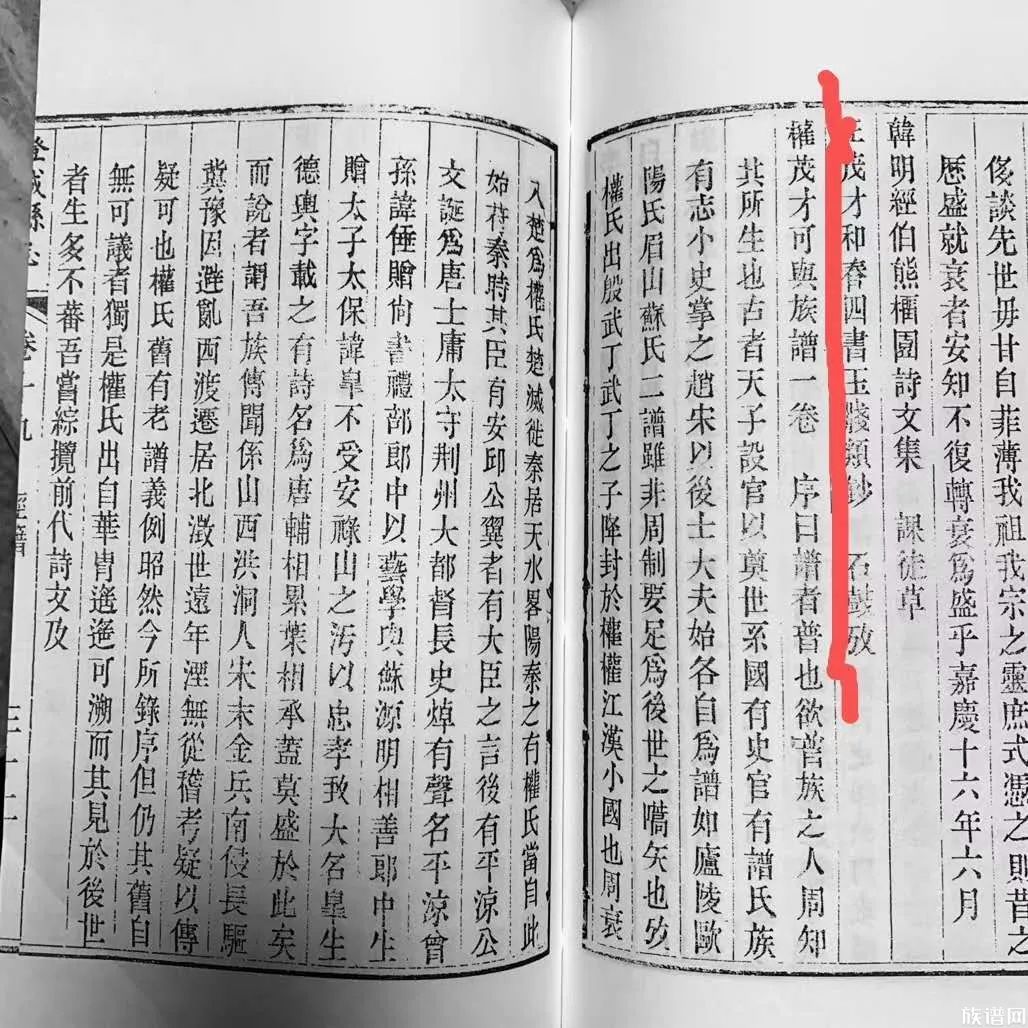 後談先世毋甘自菲薄我祖我宗之靈庶式憑之則昔之
歷盛就衰者安知不復轉衰爲盛乎嘉慶十六年六月
韓明經伯熊櫃園詩文集　課徒草
茂才和春四書玉殘類鈔　石鼓攷
權茂才可與族譜一卷　序曰譜者普也欲普族之人周知
其所生也古者天子設官以奠世系國有史官有譜氏族
有志小史掌之趙宋以後士大夫始各自爲譜如廬陵歐
陽氏眉山蘇氏二譜雖非周制要足爲後世之嚆矢也攷
權氏出殷武丁武丁之子降封於權權江漢小國也周衰
入楚爲權氏楚滅徙秦居天水畧陽秦之有權氏當自此
始苻秦時其臣有安邱公翼者有大臣之言後有平涼公
文誕爲唐士庸太守荆州大都督長史焯有聲名平涼曾
孫諱倕贈尙書禮部郎中以藝學與蘇源明相善郎中生
贈太子太保諱臯不受安祿山之汚以忠孝致大名臯生
德輿字載之有詩名爲唐輔相累葉相承蓋莫盛於此矣
而說者謂吾族傳聞係山西洪洞人宋末金兵南侵長驅
冀豫因避亂西渡遷居北澂世遠年湮無從稽考疑以傳
疑可也權氏舊有老譜義例昭然今所錄序但仍其舊自
無可議者獨是權氏出自華冑遙遙可溯而其見於後世
者生多不蕃吾嘗綜攬前代詩文及
澄城縣志　卷十九　經籍　三十二
族谱网